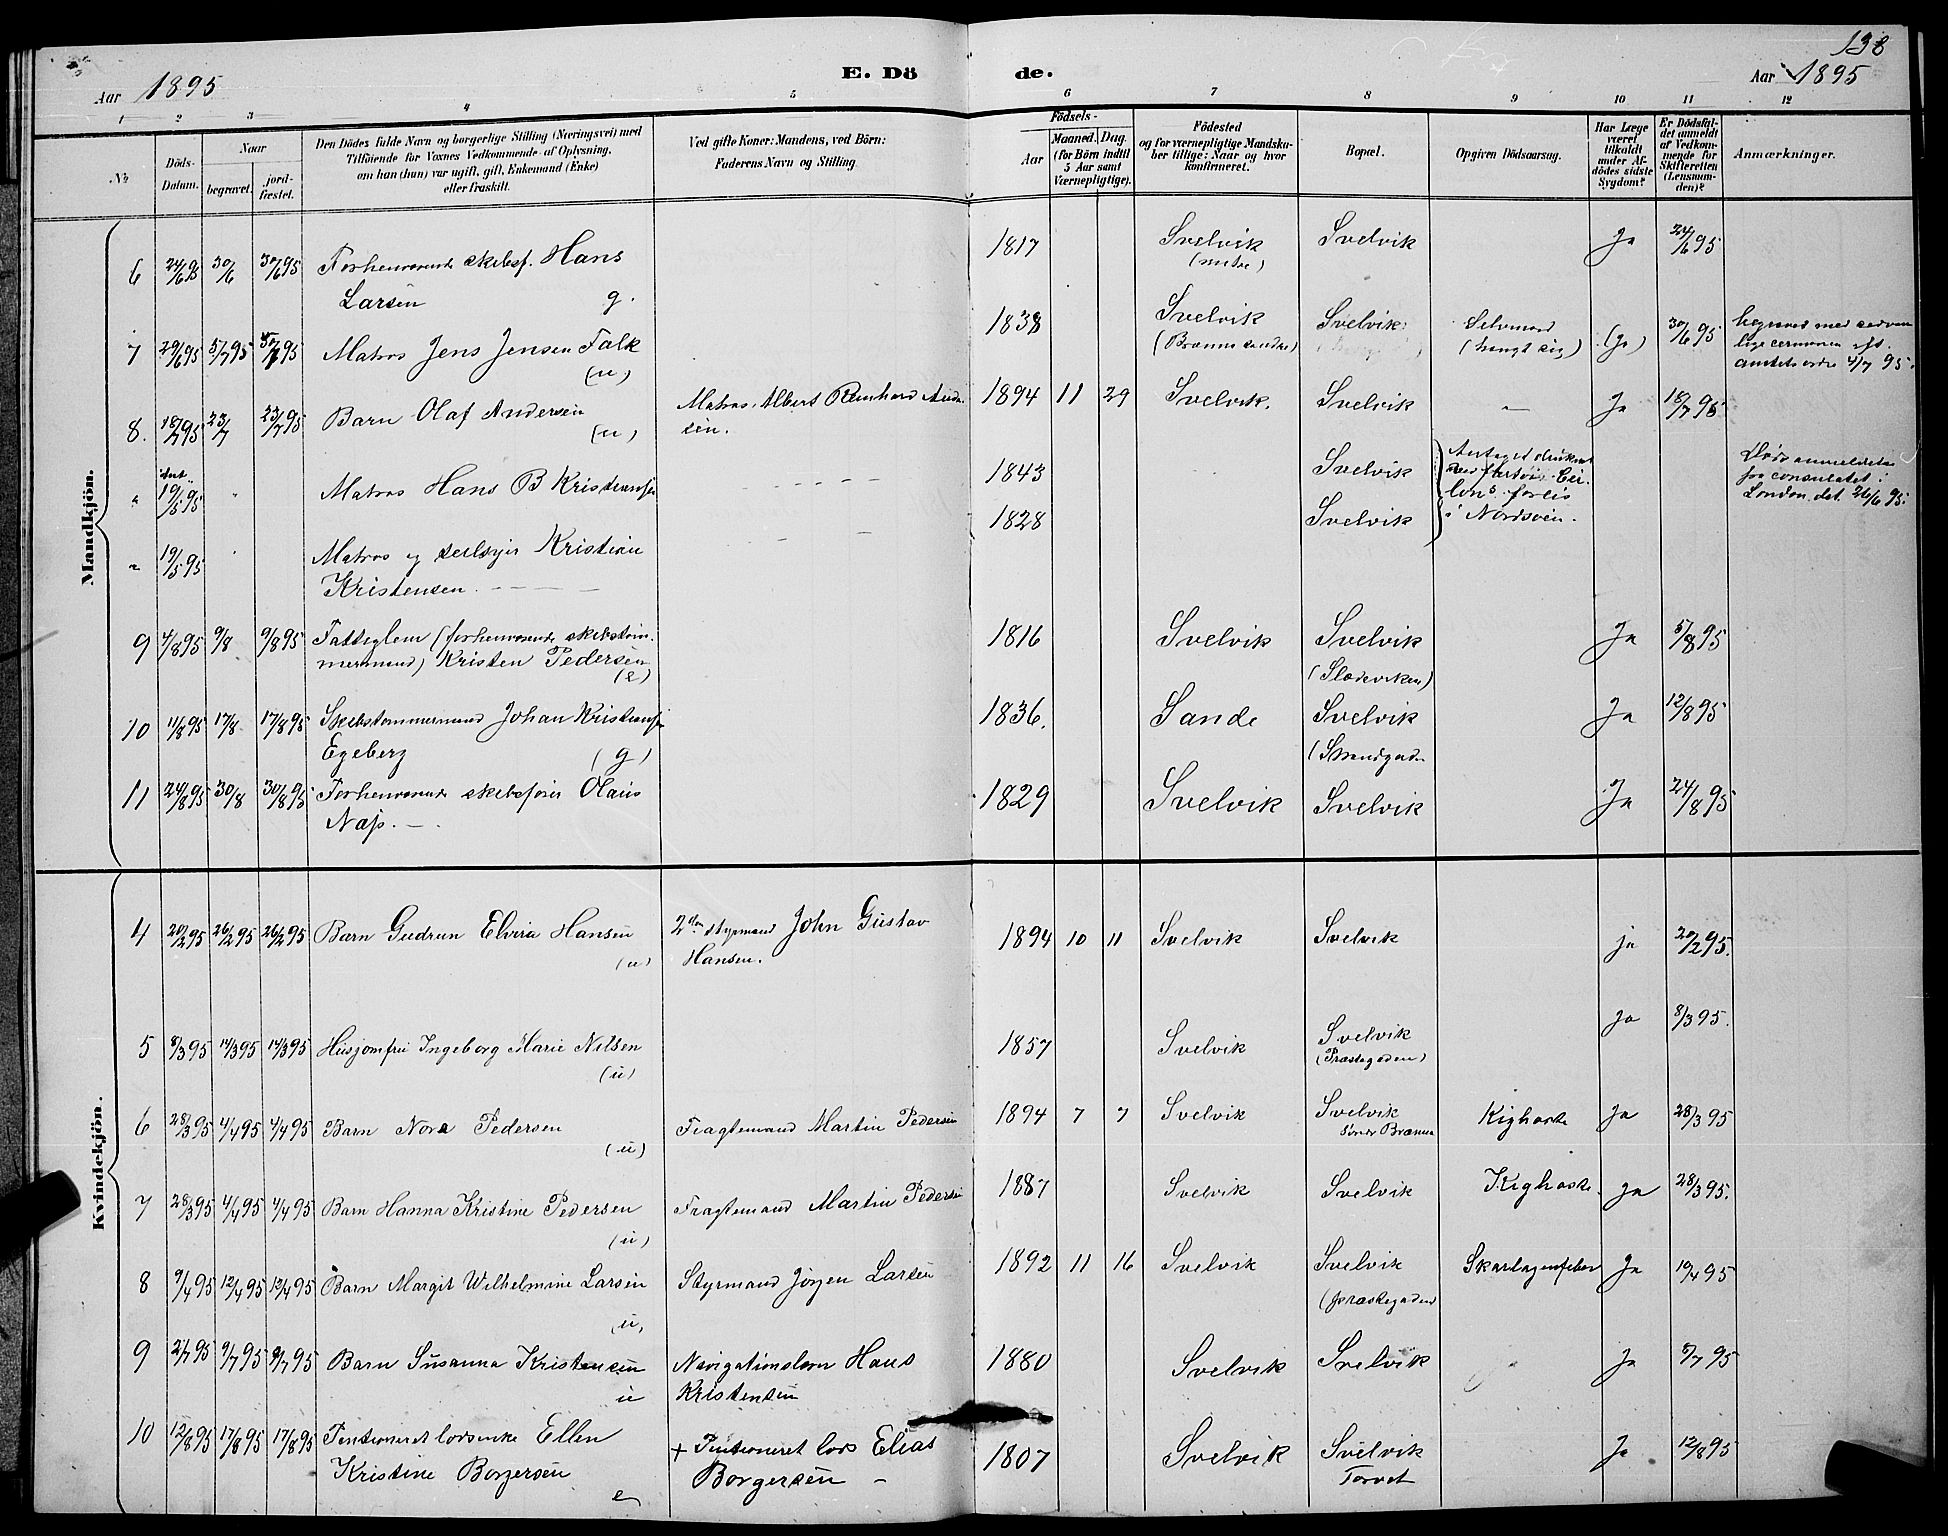 138
Aar 1895
E. Dö de.
Aar 1895
1 2 3 4 5 6 7 8 9 10 11 12
No
Döds-Datum.
Naar
begravet.
jordfæstet.
Den Dödes fulde Navn og borgerlige Stilling (Næringsvei) med
Tilföiende for Voxnes Vedkommende af Oplysning,
om han (hun) var ugift, gift, Enkemand (Enke)
eller fraskilt.
Ved gifte Koner: Mandens, ved Börn:
Faderens Navn og Stilling.
Födsels-
Aar
Maaned. Dag.
(for Börn indtil
5 Aar samt
Værnepligtige).
Födested
og for værnepligtige Mandska-
ber tillige: Naar og hvor
konfirmeret.
Bopæl.
Opgiven Dödsaarsag.
Har Læge
været
tilkaldt
under Af-
dödes sidste
Sygdom?
Er Dödsfal-
det anmeldt
af Vedkom-
mende for
Skifteretten
(Lensman-
den)?
Anmærkninger.
Mandkjön.
6 24/6 95 30/6 30/6 95 Forhenværende skibsf. Hans
Larsen g.
1817 Svelvik Svelvik Ja 24/6 95
7 29/6 95 5/7 95 5/7 95 Matros Jens Jensen Falk
(u)
1838 Svelvik Svelvik Selvmord (Ja) 30/6 95
(hængt sig)
amtets ordre 4/7 95.
8. 18/7 95 23/7 23/7 95 Barn Olaf Andersen
(u)
Matros Albert Reinhard Ander
sen.
1894 11 29 Svelvik. Svelvik — Ja 18/7 95
" 19/5 95 " Matros Hans B Kristiansen
1843 Svelvik
Antaget druknet
forlis
i Nordsøen.
Død anmeldt
fra consulatet i
London det 26/6 95.
" 19/5 95 Matros og seilsyer Kristian
Kristensen.
1828 Svelvik
9 4/8 95 9/8 9/8 95 Fattiglem (forhenværende skibstøm-
mermand) Kristen Pedersen
(e)
1816 Svelvik Svelvik Ja 5/8 95
10 11/8 95 17/8 17/8 95 Skibstømmermand Johan Kristiansen
Egeberg (g)
1836. Sande Svelvik Ja 12/8 95
(Strandgaden
11 24/8 95 30/8 30/8 95 Forhenværende skibsfører Olaus
Næs. —
1829 Svelvik Svelvik Ja 24/8 95
Kvindekjön.
4 20/2 95 26/2 95 26/2 95 Barn Gudrun Elvira Hansen
(u)
2den styrmand John Gustav
Hansen.
1894 10 11 Svelvik Svelvik ja 20/2 95.
5 8/3 95 14/3 95 14/3 95 Husjomfru Ingeborg Marie Nilsen
(u)
1857 Svelvik Svelvik Ja 8/3 95.
(Præstegaden)
6 28/3 95 4/4 95 4/4 95 Barn Nora Pedersen
(u)
Fragtemand Martin Pedersen
1894 7 7 Svelvik Svelvik Kighoste Ja 28/3 95
7 28/3 95 4/4 95 4/4 95 Barn Hanna Kristine Pedersen
(u)
Fragtemand Martin Pedersen
1887 Svelvik Svelvik Kighoste. Ja 28/3 95.
8 9/4 95 12/4 95 12/4 95 Barn Margit Wilhelmine Larsen
u,
Styrmand Jörgen Larsen
1892 11 16 Svelvik Svelvik Skarlagensfeber Ja 10/4 95
(præstegaden)
9 2/7 95 9/7 95 9/7 95 Barn Susanna Kristensen
u
Navigationslærer Hans
Kristensen
1880 Svelvik Svelvik Ja 5/7 95
10 12/8 95 17/8 95 17/8 95 Pentioneret lodsenke Ellen
Kristine Borgersen
e
+ Pentioneret lods Elias
Borgersen —
1807 Svelvik Svelvik Ja 12/8 95
Torvet